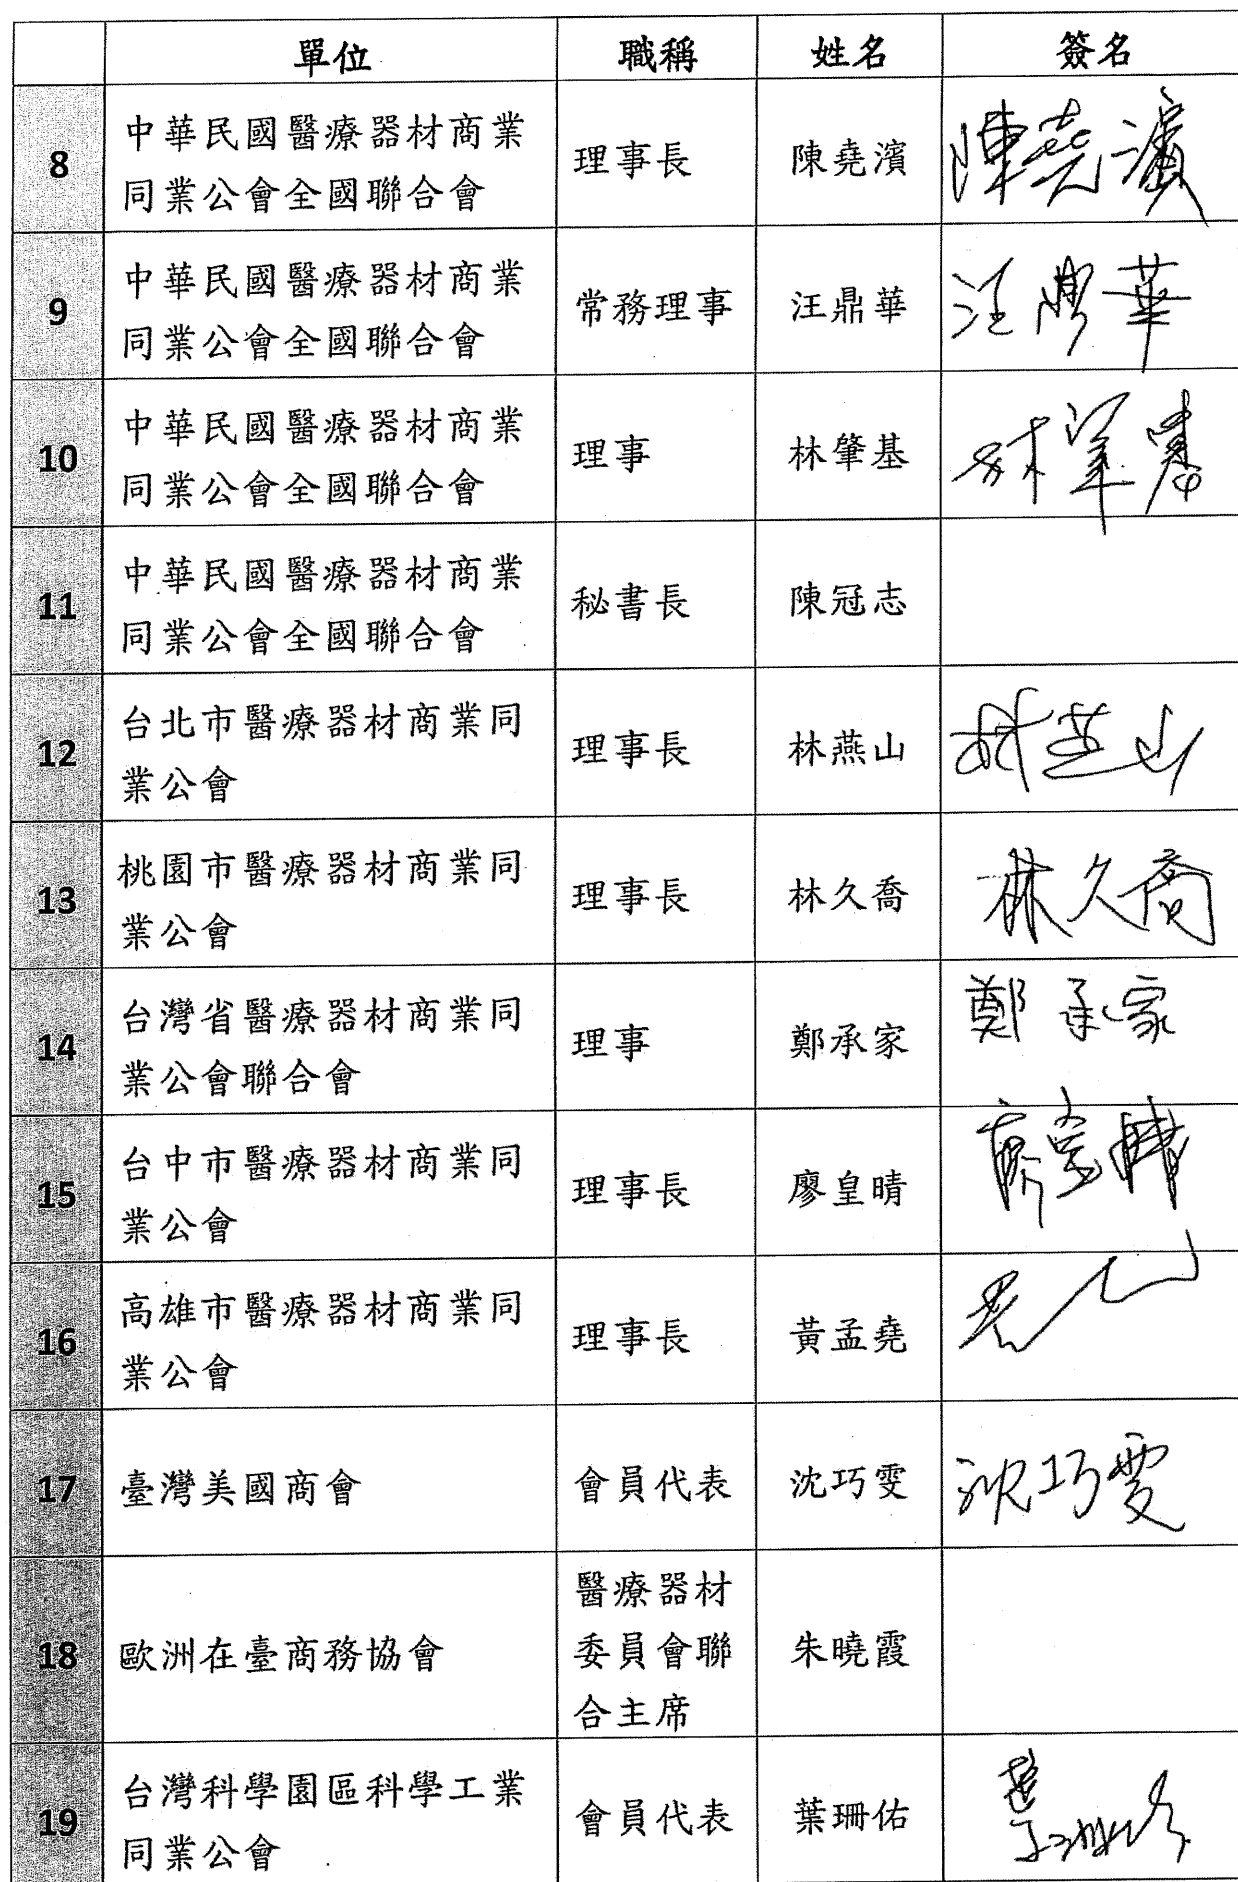 單位 職稱 姓名 簽名
8 中華民國醫療器材商業
同業公會全國聯合會 理事長 陳堯濱 陳堯濱
9 中華民國醫療器材商業
同業公會全國聯合會 常務理事 汪鼎華 汪鼎華
10 中華民國醫療器材商業
同業公會全國聯合會 理事 林肇基 林肇基
11 中華民國醫療器材商業
同業公會全國聯合會 秘書長 陳冠志
12 台北市醫療器材商業同
業公會 理事長 林燕山 林燕山
13 桃園市醫療器材商業同
業公會 理事長 林久喬 林久喬
14 台灣省醫療器材商業同
業公會聯合會 理事 鄭承家 鄭承家
15 台中市醫療器材商業同
業公會 理事長 廖皇晴 廖皇晴
16 高雄市醫療器材商業同
業公會 理事長 黃孟堯
17 臺灣美國商會 會員代表 沈巧雯 沈巧雯
18 歐洲在臺商務協會 醫療器材
委員會聯
合主席 朱曉霞
19 台灣科學園區科學工業
同業公會 會員代表 葉珊佑 葉珊佑